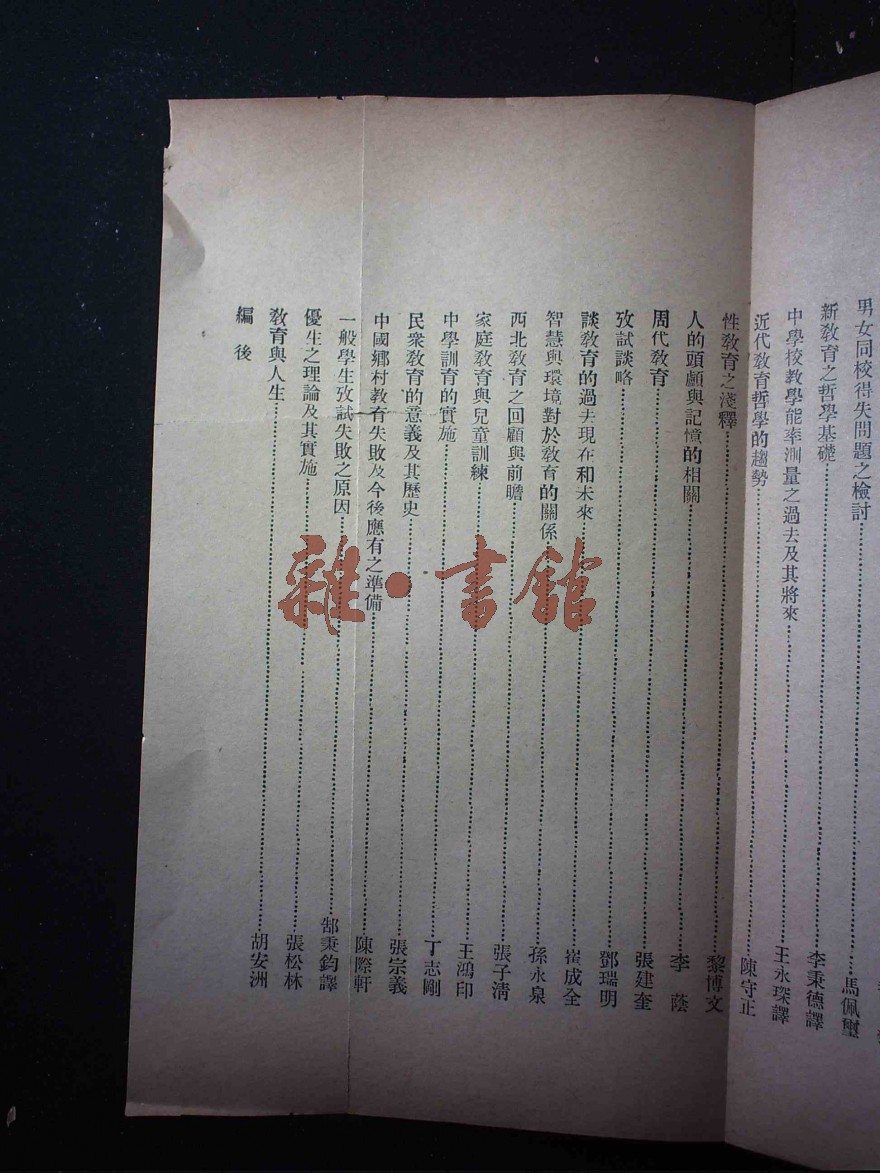 男女同校得失問題之檢討……馬佩璽
新教育之哲學基礎……李秉德譯
中學校教學能率測量之過去及其將來……王永琛譯
近代教育哲學的趨勢……陳守正
性教育之淺釋……黎博文
人的頭顱與記憶的相關……李蔭
周代教育……張建奎
攷試談略……鄧瑞明
談教育的過去現在和未來……崔成全
智慧與環境對於教育的關係……孫永泉
西北教育之回顧與前瞻……張子清
家庭教育與兒童訓練……王鴻印
中學訓育的實施……丁志剛
民衆教育的意義及其歷史……張宗義
中國鄉村教育失敗及今後應有之準備……陳際軒
一般學生攷試失敗之原因……郜秉鈞譯
優生之理論及其實施……張松林
教育與人生……胡安洲
編後
雜·書館